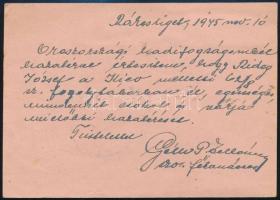 Rákosliget, 1945 nov. 10
Oroszországi hadifogságomból
hazatérve értesítem, hogy Rideg
József a Kiev melletti
sz. fogolytáborban és, egészséges
mindenkit csókol és várja
mielőbbi hazatérését.
Tisztelettel